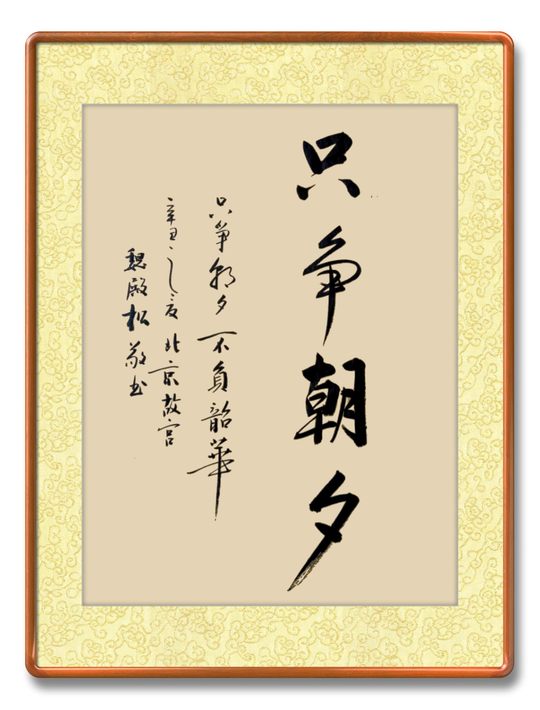 只争朝夕
只争朝夕 不负韶華
辛丑之夏 北京故宫
魏殿松敬书